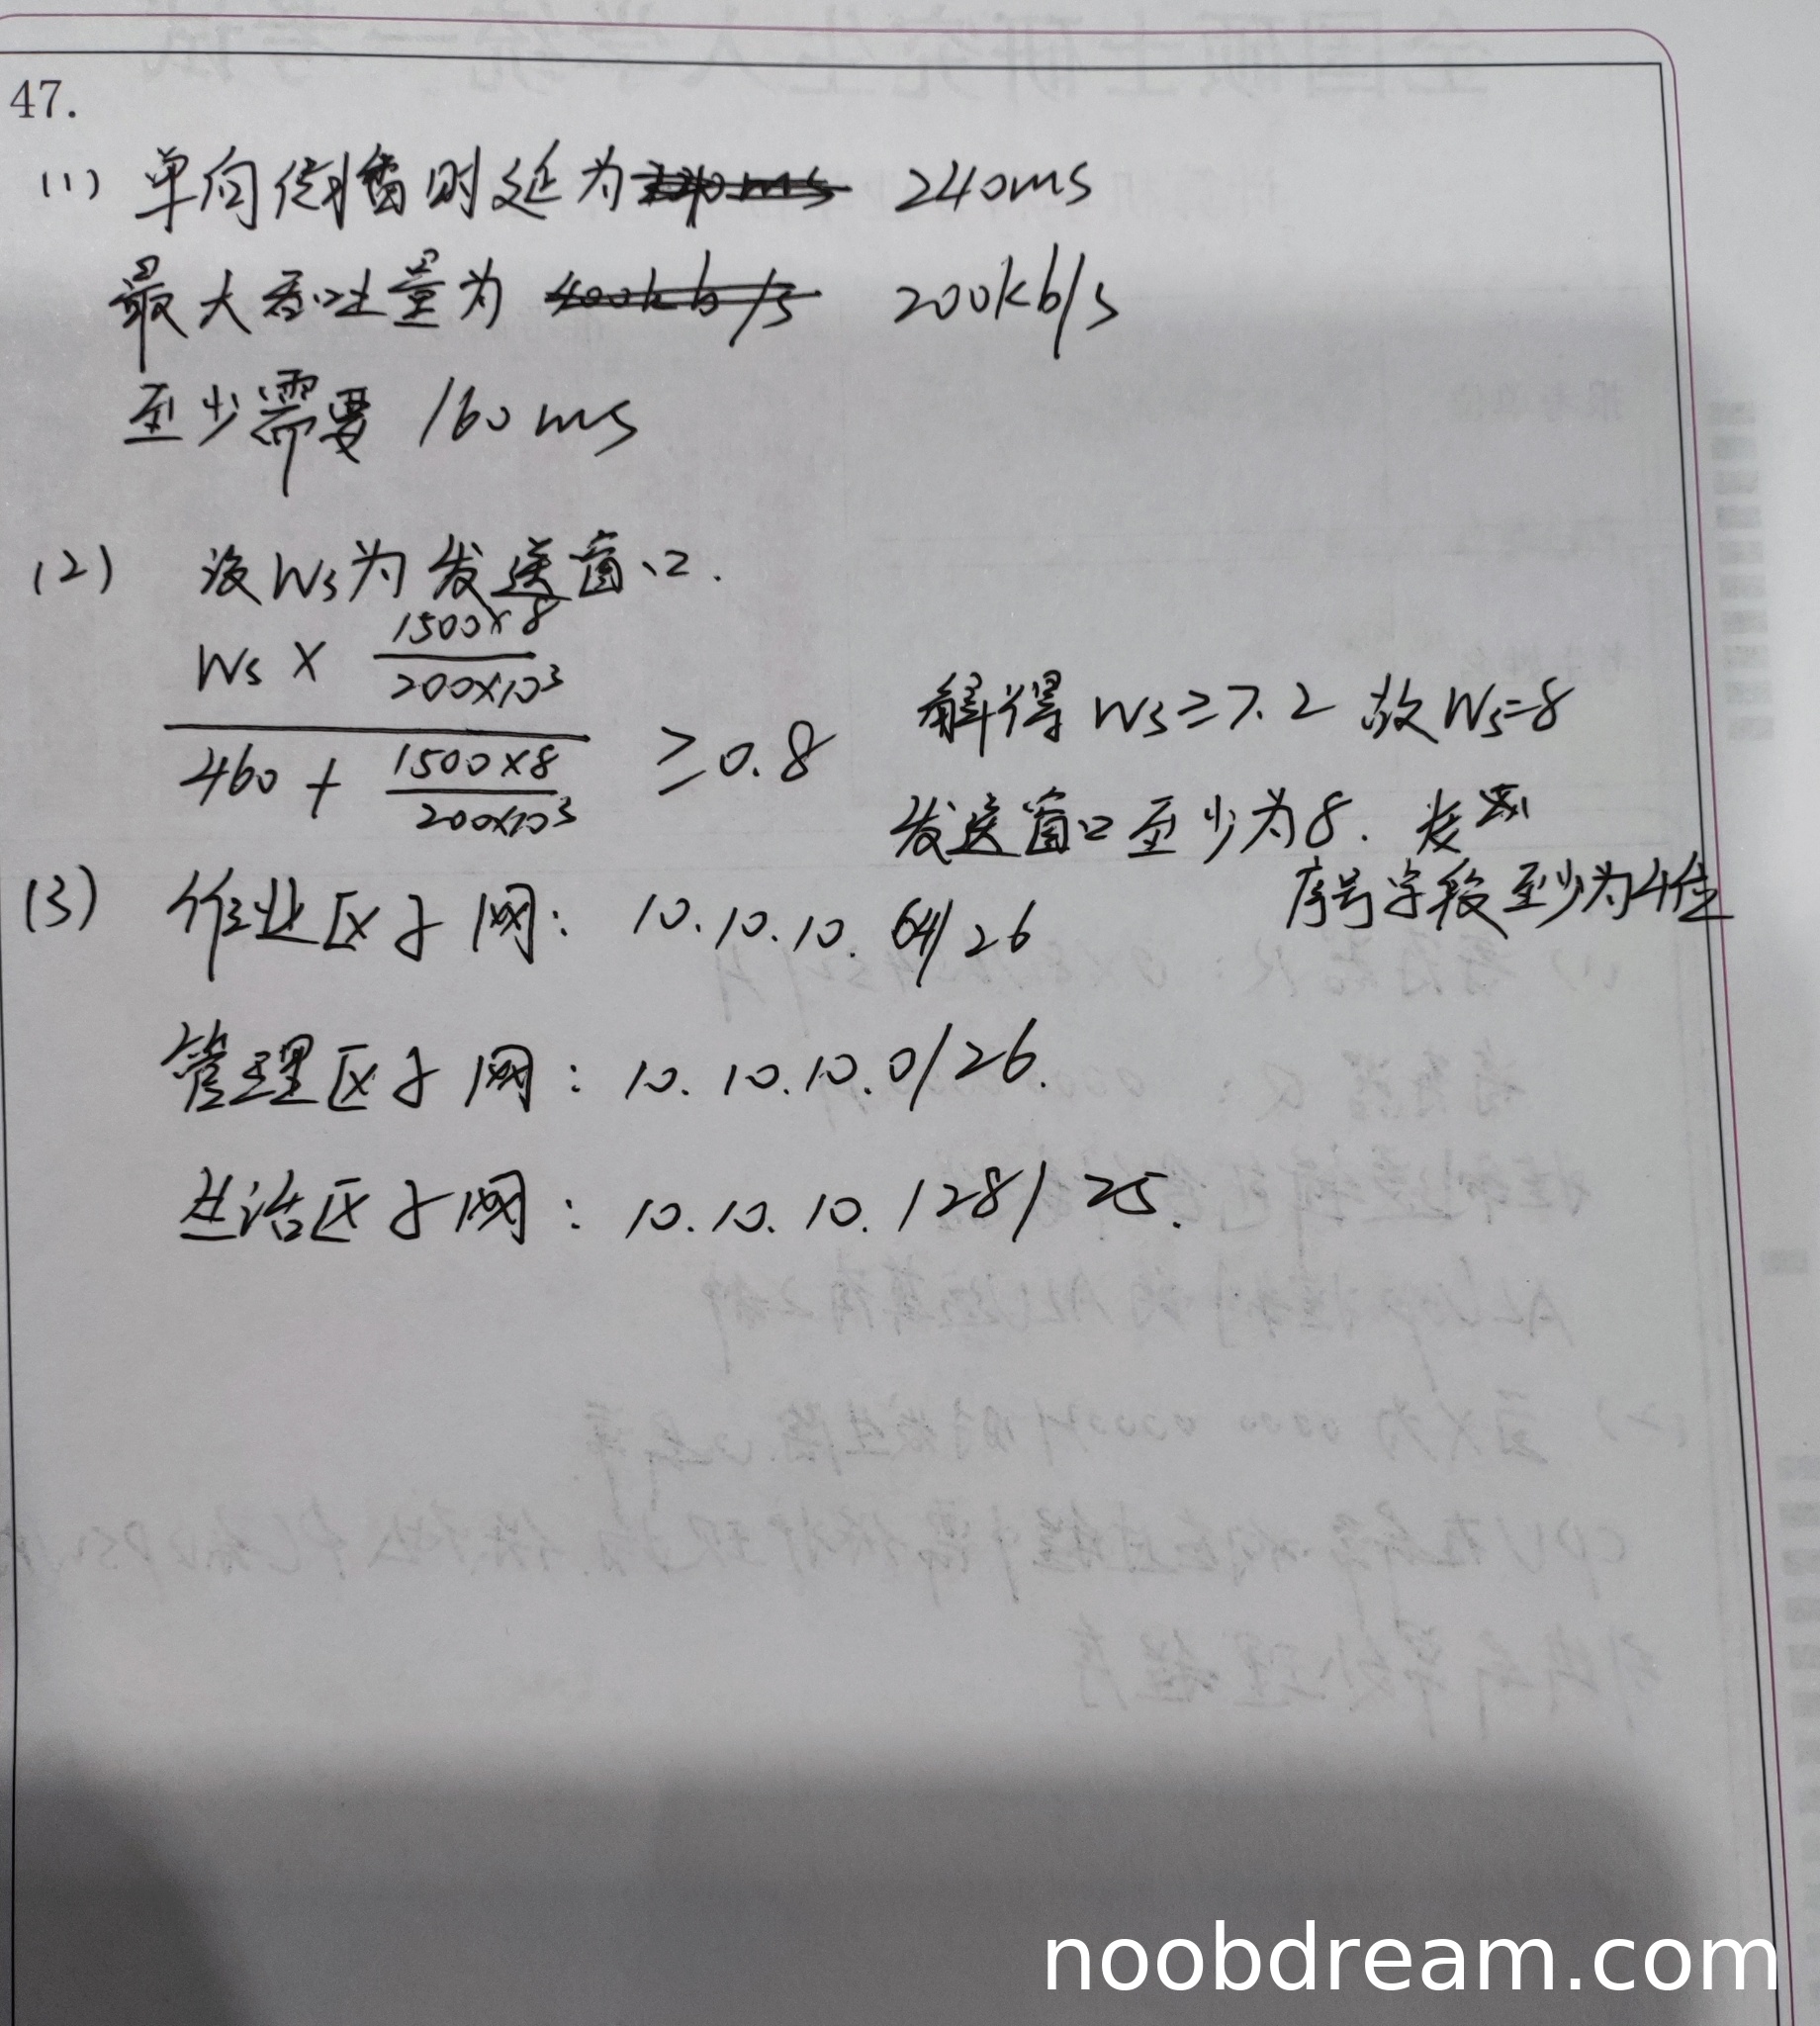 47.
(1) 单向传播时延为 240ms
最大吞吐量为 400kb/s 200kb/s
至少需要 160ms
(2) 设Ws为发送窗口.
Ws × 1500×8 / 200×10³
460 + 1500×8 / 200×10³
≥0.8
解得 Ws≥7.2 故Ws=8
发送窗口至少为8.
序号字段至少为4位
(3) 作业区子网: 10.10.10.64/26
管理区子网: 10.10.10.0/26.
生活区子网: 10.10.10.128/25.
noobdream.com